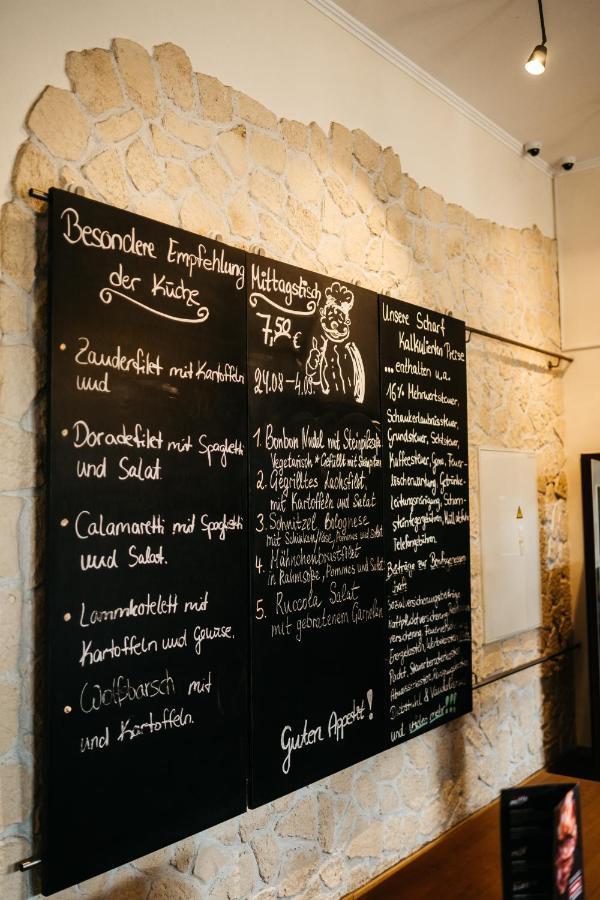 Besondere Empfehlung
der Küche
Zanderfilet mit Kartoffeln
und
Doradefilet mit Spaghetti
und Salat.
Calamaretti mit Spaghetti
und Salat.
Lammkotelett mit
Kartoffeln und Gemüse.
Wolfsbarsch mit
und Kartoffeln.
Mittagstisch
7,50 €
24.08 – 4.09.
1. Bonbon Nudel mit
Vegetarisch * Gefüllt mit
2. Gegrilltes Lachsfilet
mit Kartoffeln und Salat
3. Schnitzel bolognese
mit Schinken/Käse, Pommes und Salat
4. Hähnchenbrustfilet
in Rahmsoße, Pommes und Salat
5. Ruccola Salat
mit gebratenem Garnelen
Guten Appetit!
Unsere Scharf
Kalkulierten Preise
... enthalten u.a.
16% Mehrwertsteuer,
Schankerlaubnissteuer,
Grundsteuer, Sektsteuer,
Kaffeesteuer, Feuer-
Getränke-
leitungsreinigung, Schorn-
steinfegergebühren, Müllabfuhr
Telefongebühren.
Beiträge zur
Sozialversicherungsbeiträge
Haftpflichtversicherung
Pacht,
Diebstahl &
und vieles mehr!!!